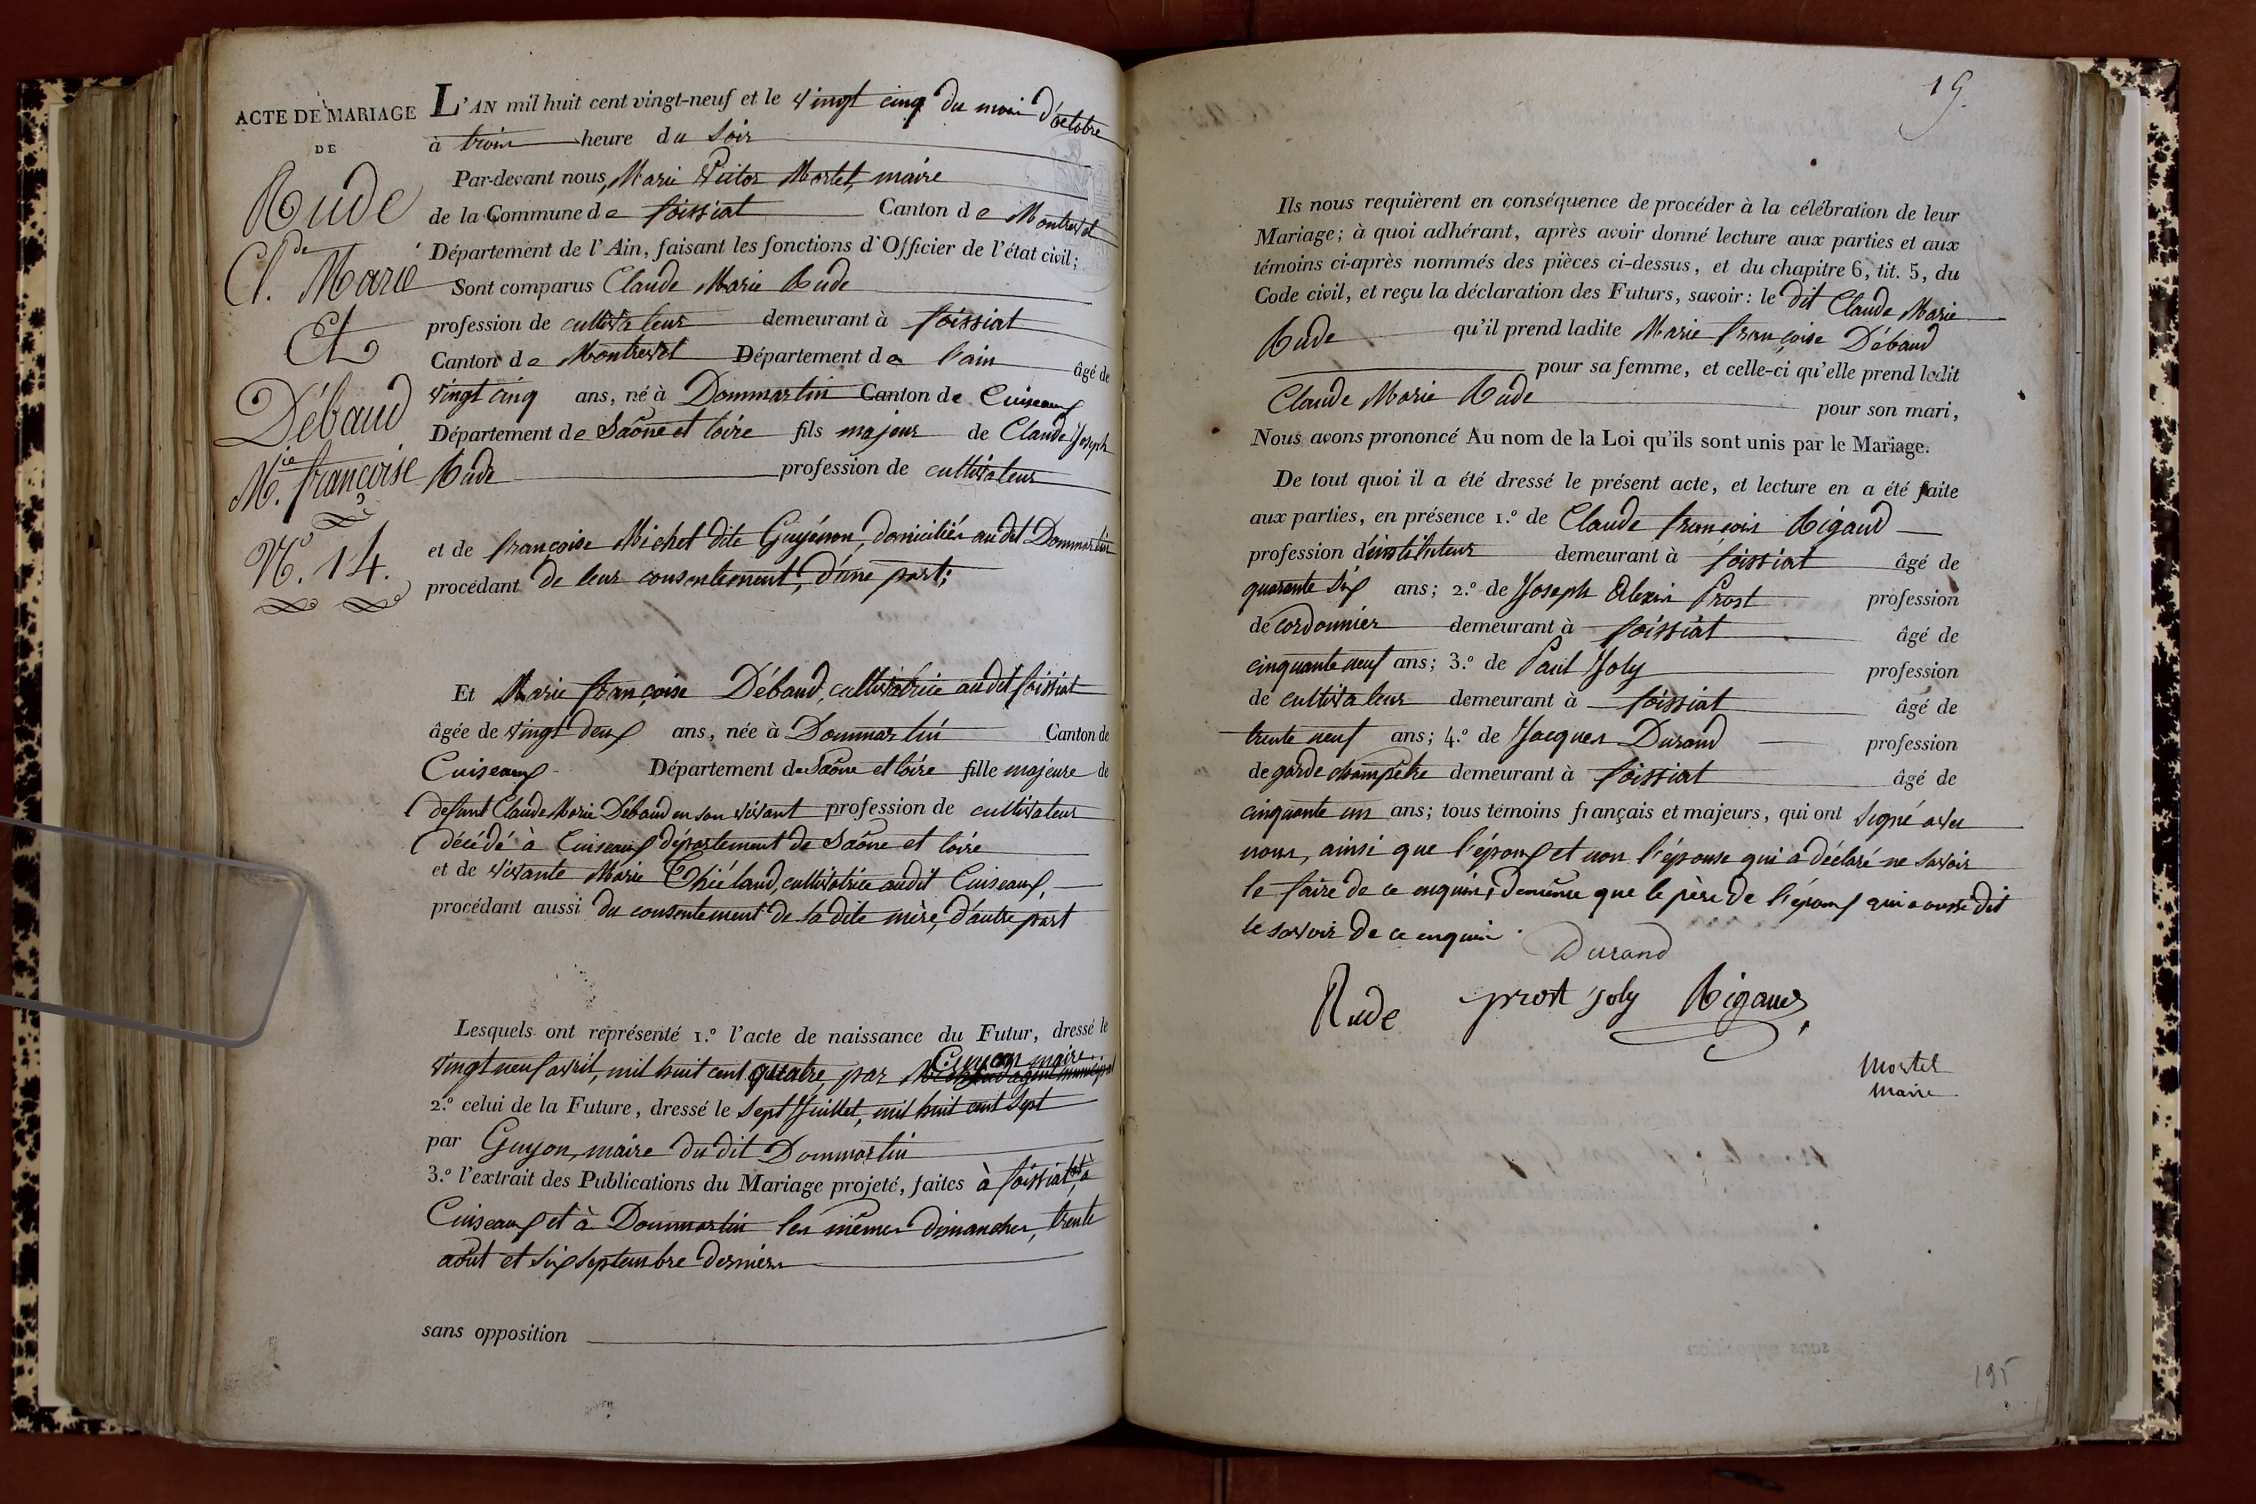 ACTE DE MARIAGE
DE
Rude
Cl.de Marie
Et
Débaud
M.ie françoise
N.o 14.
L'AN mil huit cent vingt-neuf et le vingt cinq du mois d'octobre
à trois heure du soir
Par-devant nous, Marie Victor Mortel, maire
de la Commune de foissiat Canton de Montrevel
Département de l'Ain, faisant les fonctions d'Officier de l'état civil;
Sont comparus Claude Marie Rude
profession de cultivateur demeurant à foissiat
Canton de Montrevel Département de l'ain âgé de
vingt cinq ans, né à Dommartin Canton de Cuiseaux
Département de Saône et loire fils majeur de Claude Joseph
Rude profession de cultivateur
et de françoise Michel dite Guyénon, domiciliés au dit Dommartin
procédant de leur consentement, d'une part;
Et Marie françoise Débaud, cultivatrice au dit foissiat
âgée de vingt deux ans, née à Dommartin Canton de
Cuiseaux Département de Saône et loire fille majeure de
defunt Claude Marie Débaud en son vivant profession de cultivateur
décédé à Cuiseaux département de Saône et loire
et de vivante Marie Thiéland, cultivatrice audit Cuiseaux,
procédant aussi du consentement de sa dite mère, d'autre part
Lesquels ont représenté 1.º l'acte de naissance du Futur, dressé le
Guyon maire
vingt neuf avril, mil huit cent quatre, par agent municipal
2.º celui de la Future, dressé le sept Juillet, mil huit cent sept
par Guyon, maire du dit Dommartin
3.º l'extrait des Publications du Mariage projeté, faites à foissiat, à
Cuiseaux et à Dommartin les mêmes dimanches, trente
août et six septembre derniers
sans opposition
19.
Ils nous requièrent en conséquence de procéder à la célébration de leur
Mariage; à quoi adhérant, après avoir donné lecture aux parties et aux
témoins ci-après nommés des pièces ci-dessus, et du chapitre 6, tit. 5, du
Code civil, et reçu la déclaration des Futurs, savoir: le dit Claude Marie
Rude qu'il prend ladite Marie françoise Débaud
pour sa femme, et celle-ci qu'elle prend ledit
Claude Marie Rude pour son mari,
Nous avons prononcé Au nom de la Loi qu'ils sont unis par le Mariage.
De tout quoi il a été dressé le présent acte, et lecture en a été faite
aux parties, en présence 1.º de Claude françois Rigaud
profession d'instituteur demeurant à foissiat âgé de
quarante six ans; 2.º de Joseph Alexis Prost profession
de cordonnier demeurant à foissiat âgé de
cinquante neuf ans; 3.º de Paul Joly profession
de cultivateur demeurant à foissiat âgé de
trente neuf ans; 4.º de Jacques Durand profession
de garde champêtre demeurant à foissiat âgé de
cinquante un ans; tous témoins français et majeurs, qui ont signé avec
nous, ainsi que l'époux et non l'épouse qui a déclaré ne savoir
le faire de ce enquis, demême que le père de l'époux qui a aussi dit
le savoir de ce enquis.
Durand
Rude prost Joly Rigaud
Mortel
maire
195